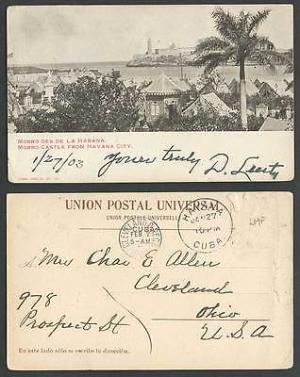 MORRO DES DE LA HABANA.
MORRO CASTLE FROM HAVANA CITY.
1/27/03 Yours truly D.
UNION POSTAL UNIVERSAL.
UNION POSTALE UNIVERSELLE
CUBA
FEB 2
5-AM
JAN 27
10 PM
CUBA
Mrs Chas E Allen
Cleveland
Ohio
U.S.A
978
Prospect St
En este lado sólo se escribe la dirección.